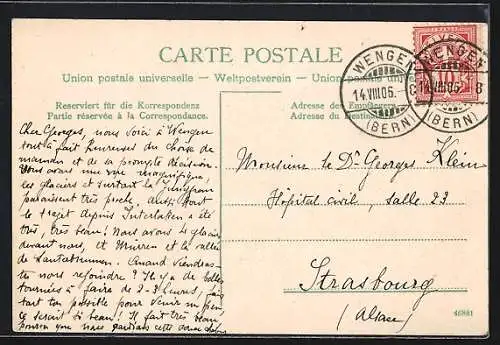 CARTE POSTALE
Union postale universelle – Weltpostverein – Union postale univer
Reserviert für die Korrespondenz
Partie réservée à la Correspondance.
Adresse des Empfängers.
Adresse du Destinat
WENGEN
14.VIII.05.– 8
(BERN)
WENGEN
14.VIII.05. 8
(BERN)
10
Cher Georges, nous voici à Wengen
tout à fait heureuses du choix de
maman et de sa prompte décision.
Nous avons une vue magnifique,
les glaciers et surtout la Jungfrau
paraissent très proche, aussi
le trajet depuis Interlaken a été
très, très beau! Nous avons le glacier
devant nous, et Mürren et la vallée
de Lauterbrunnen. Quand viendras-
tu nous rejoindre? Il y a de belles
tournées à faire de 2-3 heures, fais
tout ton possible pour venir un peu
ce serait si beau! Il fait très bon
que nous
Monsieur le Dr Georges Klein
Hôpital civil, salle 23
Strasbourg
(Alsace)
46881